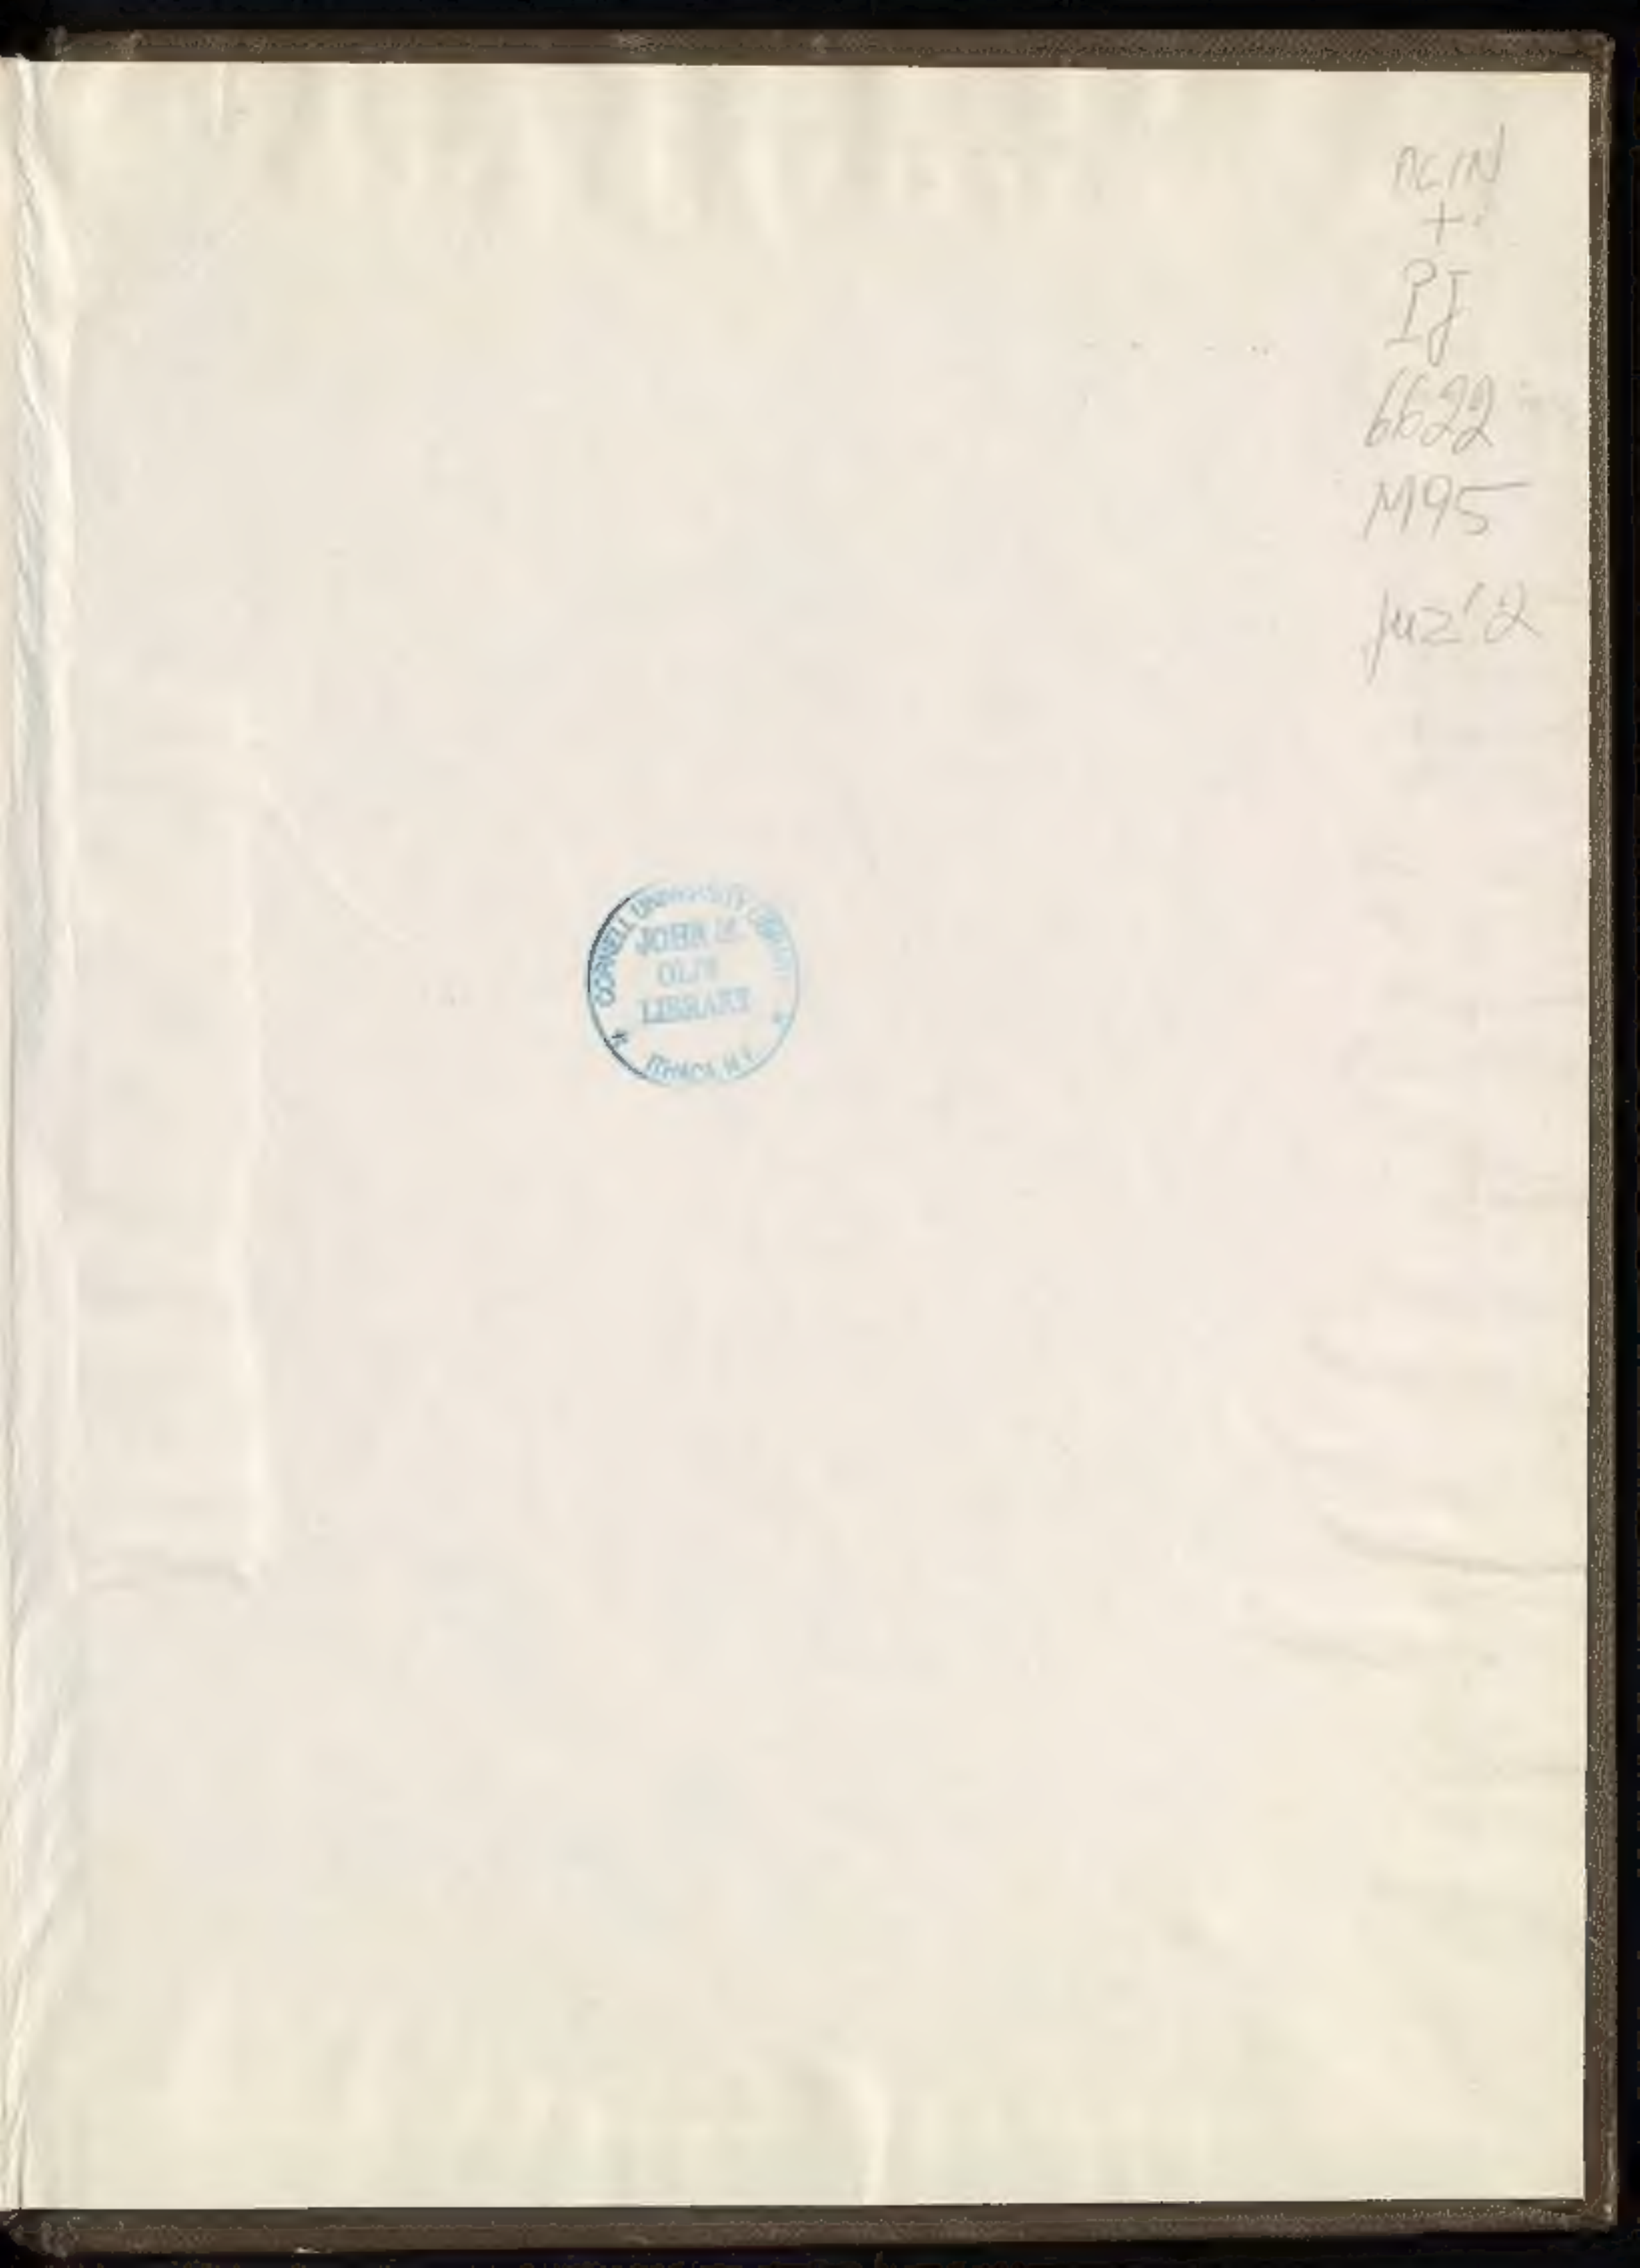 +
PJ
6622
M95
juz'2
CORNELL UNIVERSITY LIBRARY
JOHN M.
OLIN
LIBRARY
ITHACA, N.Y.